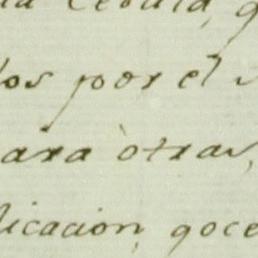 Cedula,
por el
ara òtras,
licacion, goce